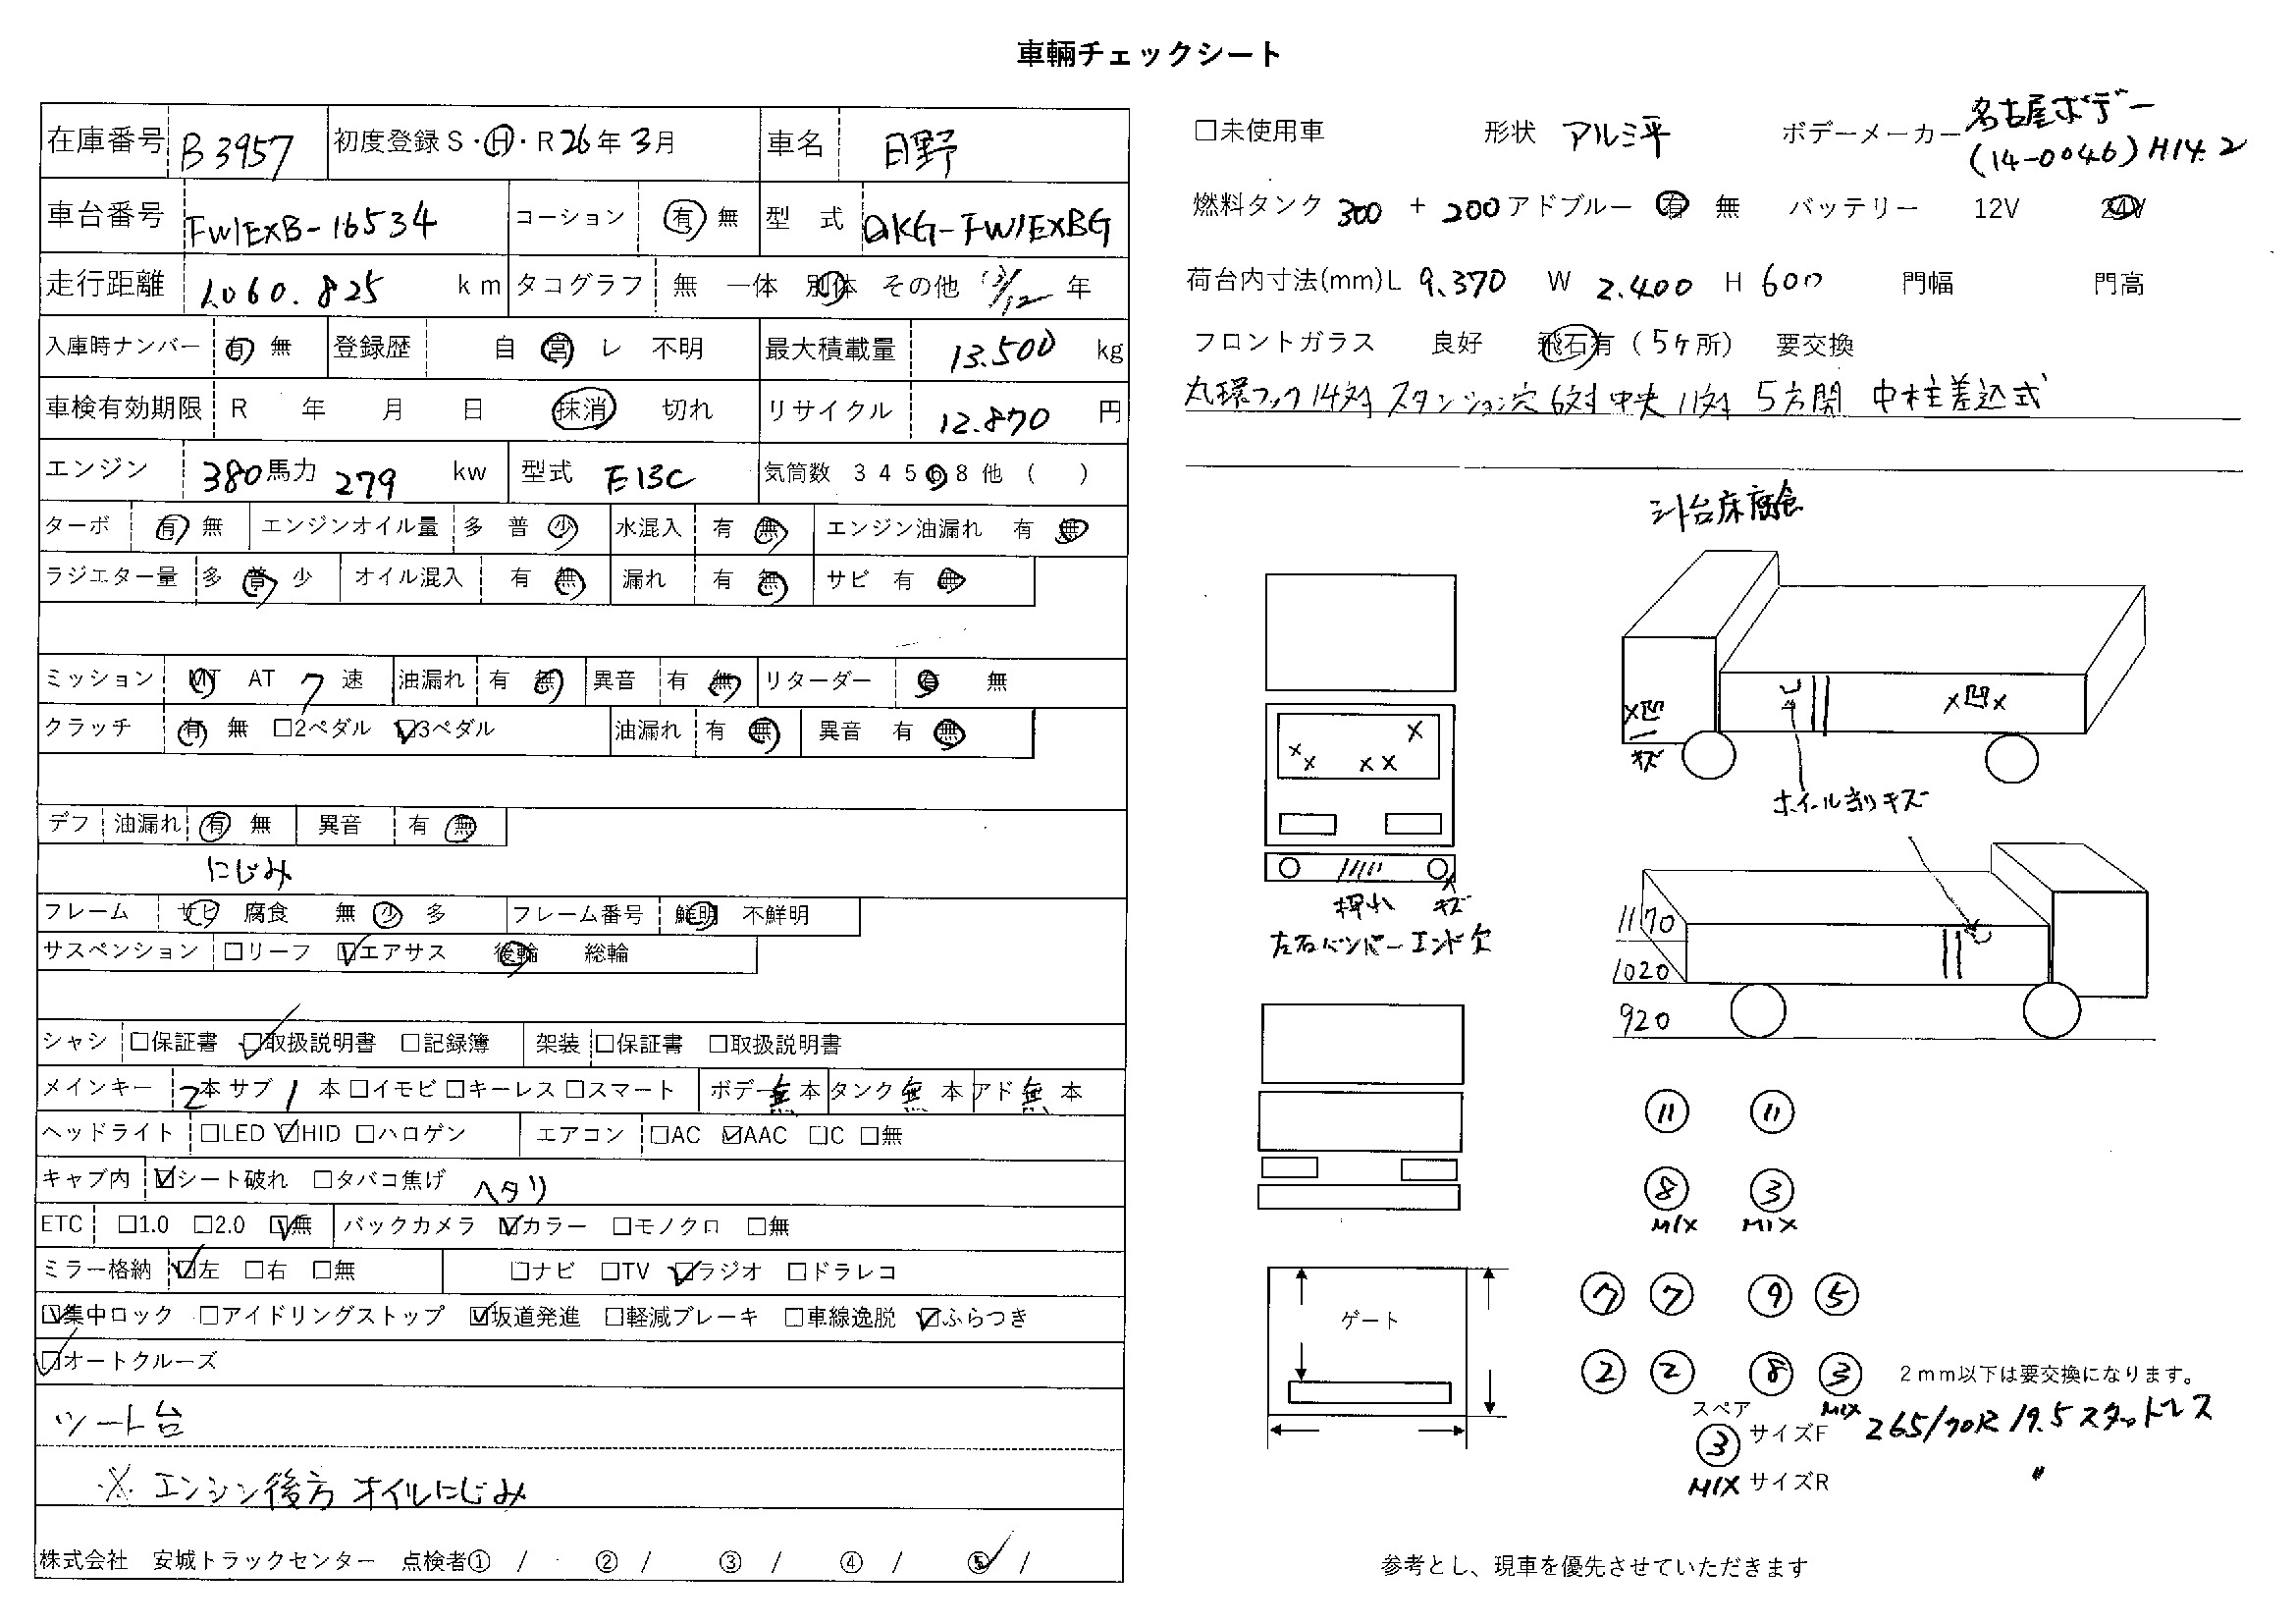 車輛チェックシート
在庫番号 B3957 初度登録 S・H・R 26年 3月 車名 日野
車台番号 FW1EXB-16534 コーション 有 無 型 式 QKG-FW1EXBG
走行距離 1.060.825 km タコグラフ 無 一体 別体 その他 '13/12 年
入庫時ナンバー 有 無 登録歴 自 営 レ 不明 最大積載量 13.500 kg
車検有効期限 R 年 月 日 抹消 切れ リサイクル 12.870 円
エンジン 380馬力 279 kw 型式 E13C 気筒数 3 4 5 6 8 他 ( )
ターボ 有 無 エンジンオイル量 多 普 少 水混入 有 無 エンジン油漏れ 有 無
ラジエター量 多 普 少 オイル混入 有 無 漏れ 有 無 サビ 有 無
ミッション MT AT 7 速 油漏れ 有 無 異音 有 無 リターダー 有 無
クラッチ 有 無 □2ペダル ☑3ペダル 油漏れ 有 無 異音 有 無
デフ 油漏れ 有 無 異音 有 無
にじみ
フレーム サビ 腐食 無 少 多 フレーム番号 鮮明 不鮮明
サスペンション □リーフ ☑エアサス 後輪 総輪
シャシ □保証書 ☑取扱説明書 □記録簿 架装 □保証書 □取扱説明書
メインキー 2本 サブ 1 本 □イモビ □キーレス □スマート ボデー無 本 タンク無 本 アド無 本
ヘッドライト □LED ☑HID □ハロゲン エアコン □AC ☑AAC □C □無
キャブ内 ☑シート破れ □タバコ焦げ ヘタリ
ETC □1.0 □2.0 ☑無 バックカメラ ☑カラー □モノクロ □無
ミラー格納 ☑左 □右 □無 □ナビ □TV ☑ラジオ □ドラレコ
☑集中ロック □アイドリングストップ ☑坂道発進 □軽減ブレーキ □車線逸脱 ☑ふらつき
☑オートクルーズ
シート台
※ エンジン後方 オイルにじみ
株式会社 安城トラックセンター 点検者① / ② / ③ / ④ / ⑤ /
□未使用車 形状 アルミ平 ボデーメーカー 名古屋ボデー
(14-0046) H14.2
燃料タンク 300 + 200 アドブルー 有 無 バッテリー 12V 24V
荷台内寸法(mm)L 9.370 W 2.400 H 600 門幅 門高
フロントガラス 良好 飛石有 (5ヶ所) 要交換
丸環フック14対 スタンション穴6対 中央11対 5方開 中柱差込式
荷台床腐食
X凹
キズ
X凹X
ホイール割りキズ
押れ キズ
左右バンパーエンド欠
1170
1020
920
11 11
8 3
MIX MIX
7 7 9 5
2 2 8 3 2mm以下は要交換になります。
MIX
ゲート
スペア
3 サイズF 265/70R 19.5 スタットレス
MIX サイズR 〃
参考とし、現車を優先させていただきます